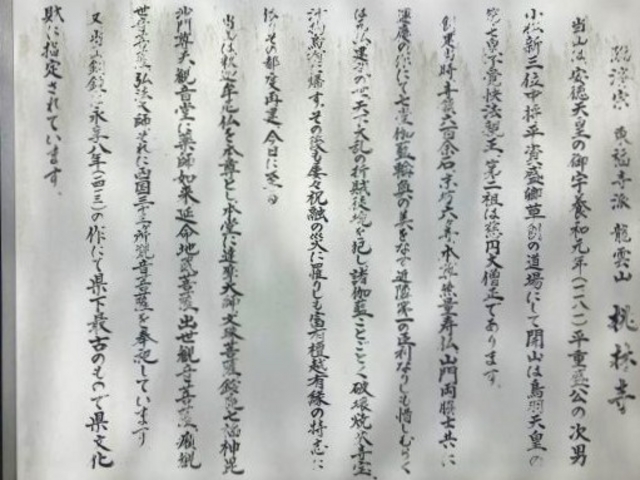 臨済宗 東福寺派 龍雲山 桃林寺
当山は安徳天皇の御宇養和元年(一一八一)平重盛公の次男
小松新三位中将平資盛卿草創の道場にして開山は鳥羽天皇の
第七皇子覚快法親王、第二祖は慈円大僧正であります。
創業当時寺領六百余石、末坊六ヶ寺、本尊無量寿仏、山門両脇士共に
運慶の作にて七堂伽藍輪奐の美をなす 近隣第一の巨刹なりしも惜しむらく
は仏運 天下大乱の折賊徒境を犯し諸伽藍ことごとく破壊焼失寺宝
烏有に帰す、その後も屡々祝融の災に罹りしも 檀越有縁の特志に
その都度再建今日に至る
当山は釈迦牟尼仏を本尊とし本堂に達摩大師文殊菩薩 七面神毘
沙門尊天観音堂に薬師如来延命地蔵菩薩出世観音菩薩
世音菩薩弘法大師それに西国三十三ヶ所観音菩薩を奉祀しています
又当山 鐘は永享八年(一四三 )の作にて県下最古のもので県文化
財に指定されています。